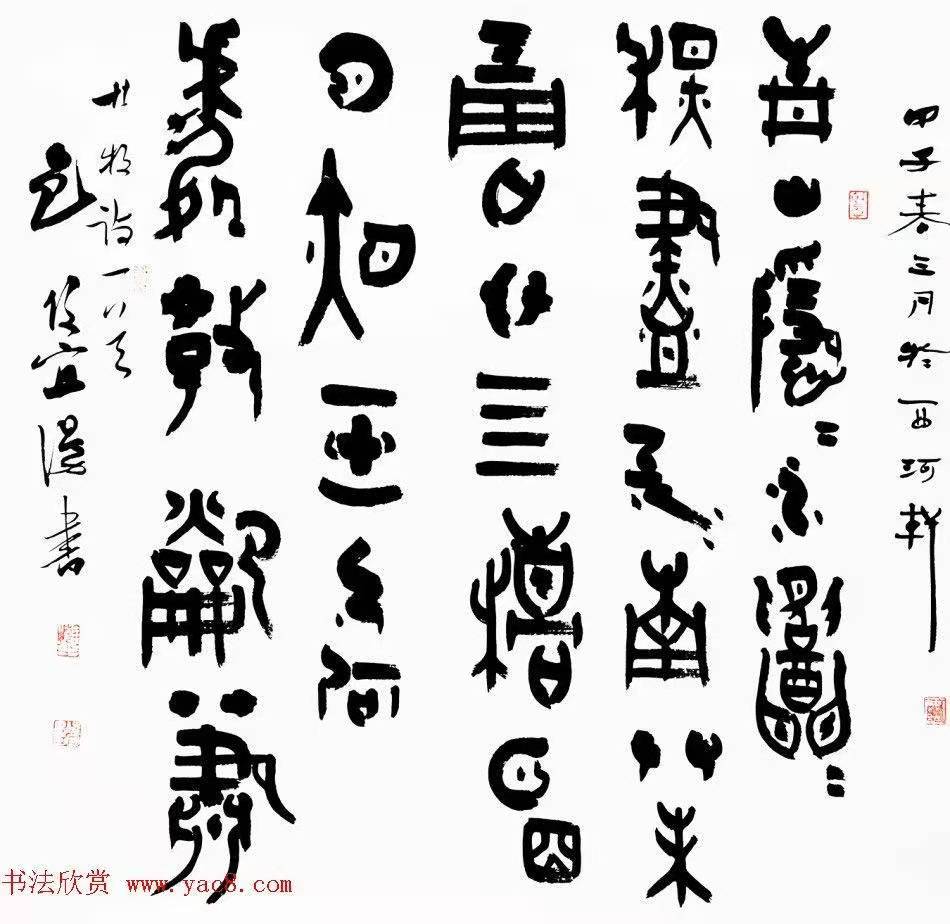 甲子春三月於西河軒
青山隱=水遙=
秋盡江南艸未
凋二十亖橋明
月夜玉人何
處教龡簫
杜牧詩一首
書
书法欣赏 www.yac8.com